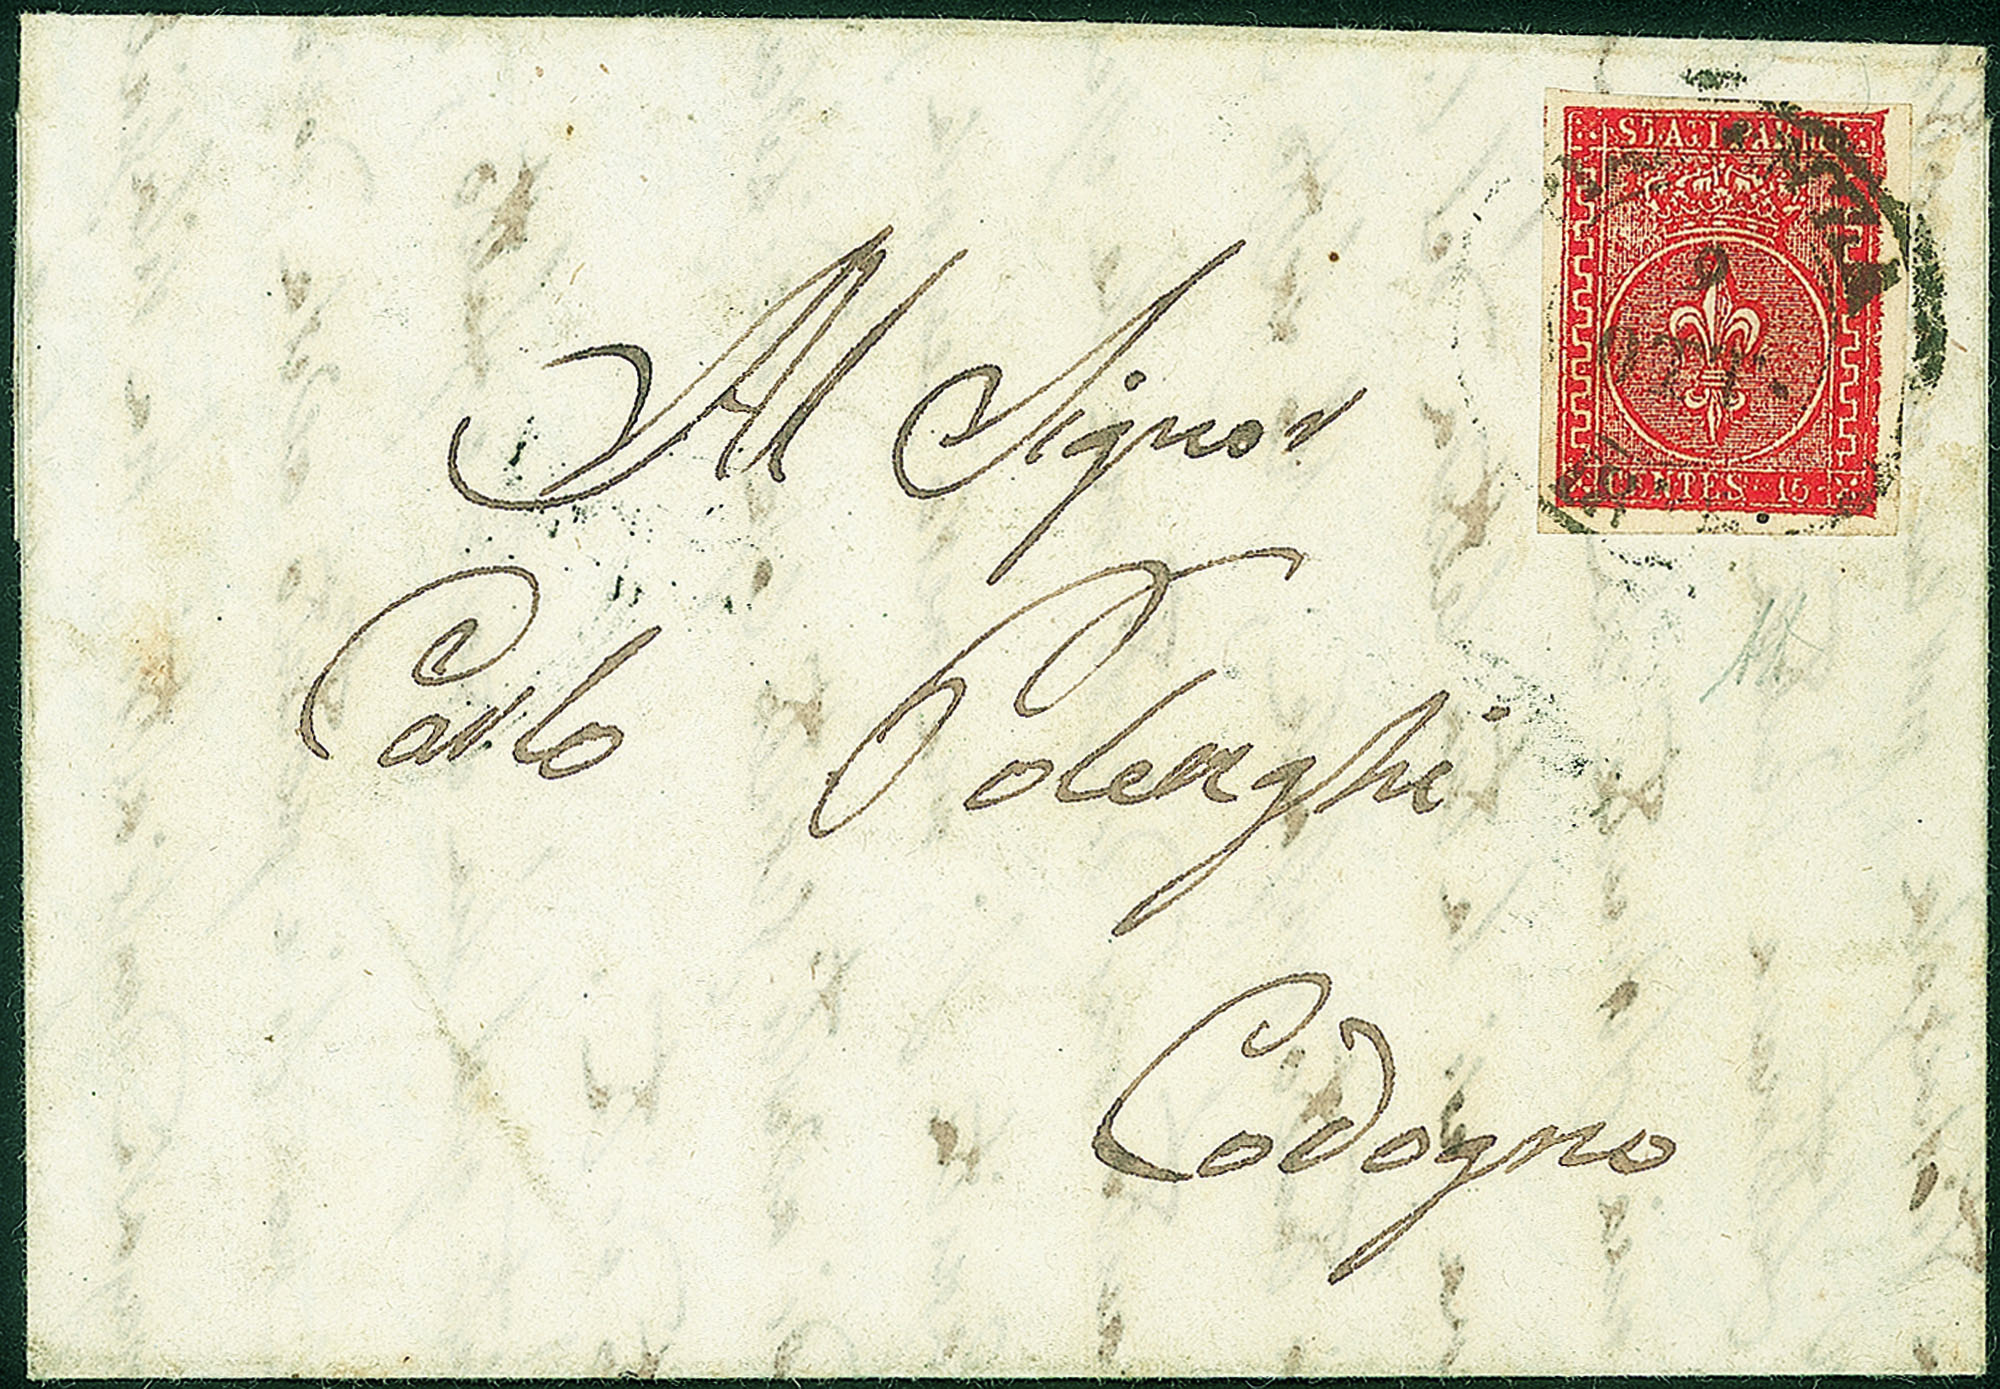 STATI PARM.
9
OTT.
CENTES. 15
Al Signor
Carlo Polenghi
Codogno